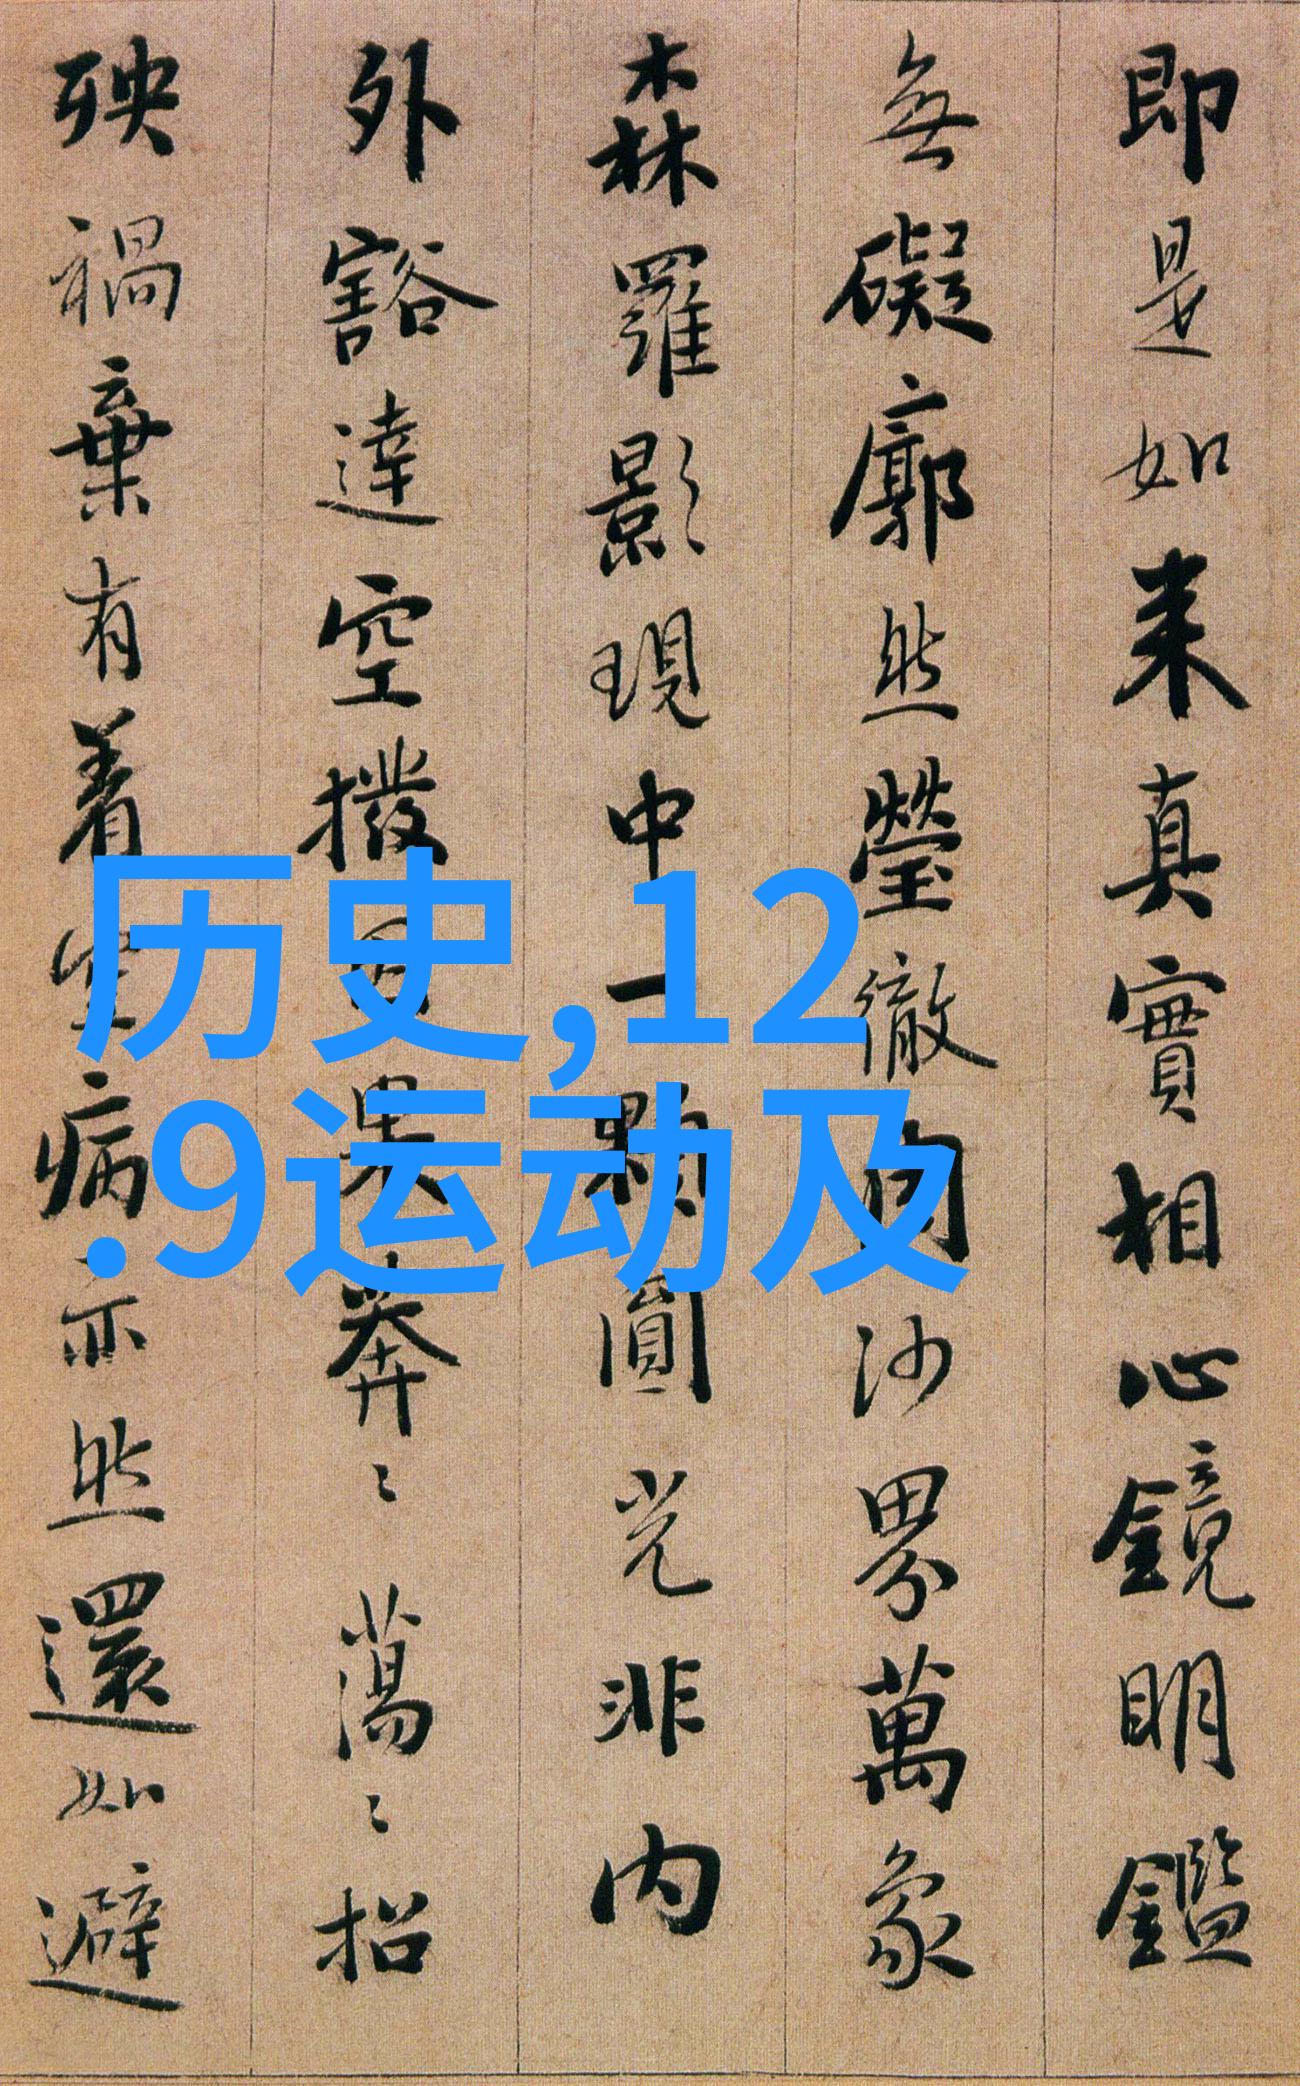 即是如来真實相心鏡明鑑
無礙廓然瑩徹周沙界萬象
森羅影現中一顆圓光非内
外豁達空撥因果莽〻蕩〻招
殃禍棄有着空病亦然還如避
历史,12
.9运动及